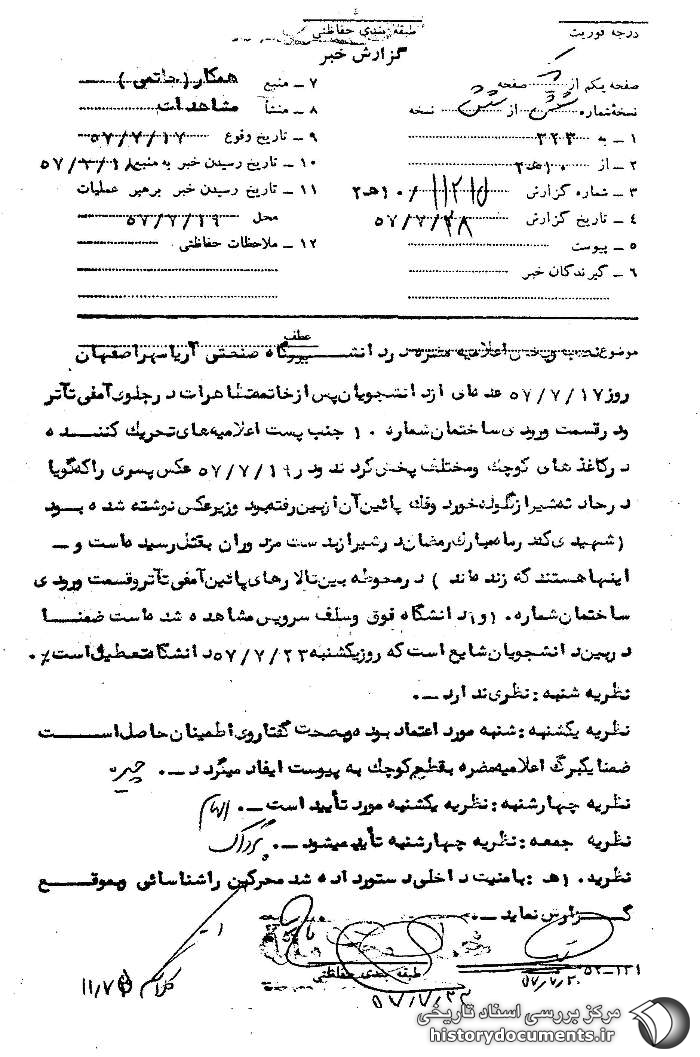 درجه فوریت
طبقه بندی حفاظتی
گزارش خبر
صفحه یکم از یک صفحه
نسخه شماره شش از شش نسخه
۱ ـ به ۳۲۳
۲ ـ از ۱۰هـ۲
۳ ـ شماره گزارش ۱۰هـ۲/
۴ ـ تاریخ گزارش ۵۷/۷/
۵ ـ پیوست
۶ ـ گیرندگان خبر
۷ ـ منبع همکار (حاتمی)
۸ ـ منشأ مشاهدات
۹ ـ تاریخ وقوع ۵۷/۷/۱۷
۱۰ ـ تاریخ رسیدن خبر به منبع ۵۷/۷/۱۸
۱۱ ـ تاریخ رسیدن خبر برهبر عملیات
محل ۵۷/۷/۱۹
۱۲ ـ ملاحظات حفاظتی
عطف
موضوع اعلامیه مضره در دانشگاه صنعتی آریامهر اصفهان
روز ۵۷/۷/۱۷ عده‌ای از دانشجویان پس از خاتمه تظاهرات در جلوی آمفی تآتر
و در قسمت ورودی ساختمان شماره ۱۰ جنب پست اعلامیه‌های تحریک کننده
در کاغذهای کوچک و مختلف پخش کردند و در ۵۷/۷/۱۹ عکس پسری را که گویا
در حادثه شیراز گلوله خورد و فک پائین آن از بین رفته بود و زیر عکس نوشته شده بود
(شهیدی که در ماه مبارک رمضان در شیراز بدست مزدوران بقتل رسیده است و ـ
اینها هستند که زنده‌اند) در محوطه بین تالارهای پائین آمفی تآتر و قسمت ورودی
ساختمان شماره ۱۰ دانشگاه فوق و سلف سرویس مشاهده شده است ضمنا
در بین دانشجویان شایع است که روز یکشنبه ۵۷/۷/۲۳ دانشگاه تعطیل است٪.
نظریه شنبه : نظری ندارد ـ.
نظریه یکشنبه : شنبه مورد اعتماد بوده و بصحت گفتار وی اطمینان حاصل است
ضمنا یکبرگ اعلامیه مضره بقطع کوچک به پیوست ایفاد میگردد ـ. چیره
نظریه چهارشنبه : نظریه یکشنبه مورد تأیید است ـ. الهام
نظریه جمعه : نظریه چهارشنبه تأیید میشود ـ.
نظریه ۱۰هـ : بامنیت داخلی دستور داده شد محرکین را شناسائی و بموقع
گزارش نماید ـ.
طبقه بندی حفاظتی
۵۷/۷/۲۳
مرکز بررسی اسناد تاریخی
historydocuments.ir